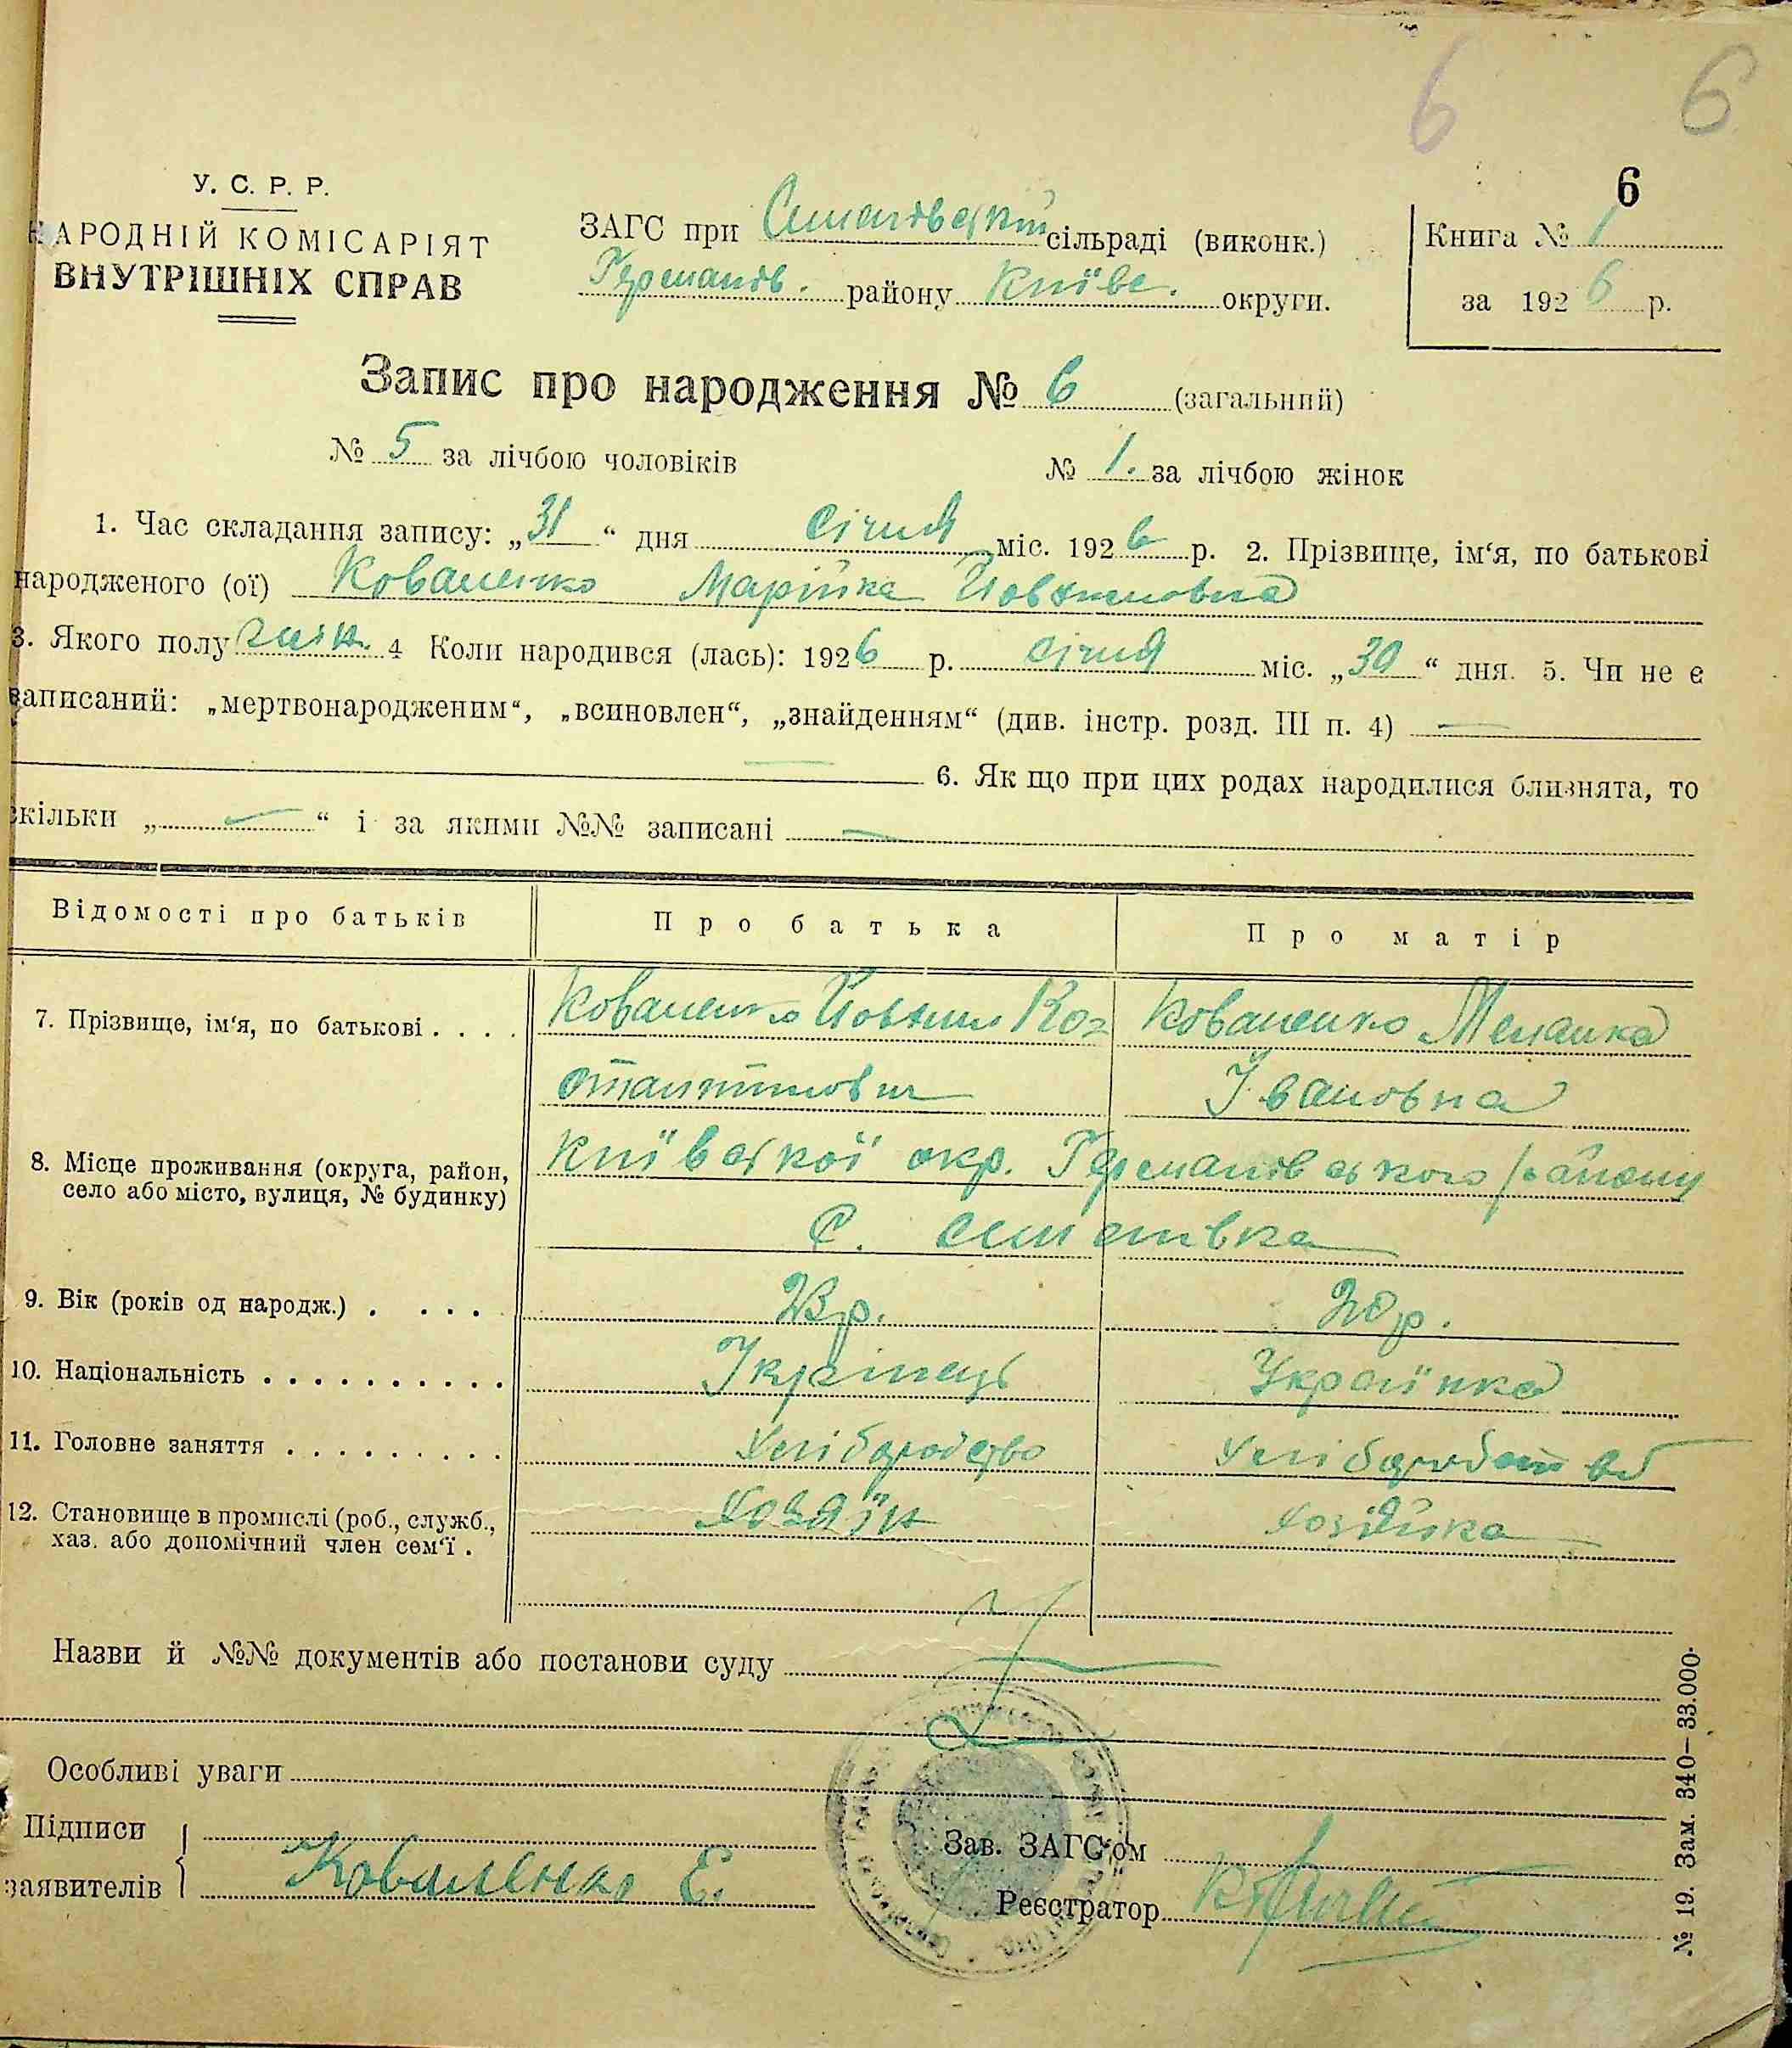 6 6
6
У. С. Р. Р.
НАРОДНІЙ КОМІСАРІЯТ
ВНУТРІШНІХ СПРАВ
ЗАГС при сільраді (виконк.)
Германів. району Київс. округи.
Книга № 1
за 1926 р.
Запис про народження № 6 (загальний)
№ 5 за лічбою чоловіків № 1. за лічбою жінок
1. Час складання запису: „31“ дня січня міс. 1926 р. 2. Прізвище, ім‘я, по батькові
народженого (ої) Коваленко Марійка Йовхимовна
3. Якого полу жін. 4 Коли народився (лась): 1926 р. січня міс. „30“ дня. 5. Чи не є
записаний: „мертвонародженим“, „всиновлен“, „знайденням“ (див. інстр. розд. III п. 4) —
— 6. Як що при цих родах народилися близнята, то
скільки „—“ і за якими №№ записані —
Відомості про батьків Про батька Про матір
7. Прізвище, ім‘я, по батькові . . . . Коваленко Йовхим Ко= Коваленко Меланка
стантинович Івановна
8. Місце проживання (округа, район, Київської окр. Германівського району
село або місто, вулиця, № будинку)
с.
9. Вік (років од народж.) . . . . 23 р. 20 р.
10. Національність . . . . . . . . . . Українець Українка
11. Головне заняття . . . . . . . . . Хліборобство Хліборобство
12. Становище в промислі (роб., служб., Хозяїн Хозяйка
хаз. або допомічний член сем‘ї .
Назви й №№ документів або постанови суду
Особливі уваги
Підписи
заявителів Коваленко Е.
Зав. ЗАГС‘ом
Реєстратор
№ 19. Зам. 340—33.000.